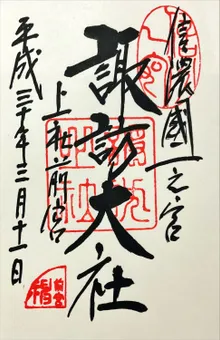 信濃國一之宮
諏訪大社
上社前宮
平成三十年三月十一日